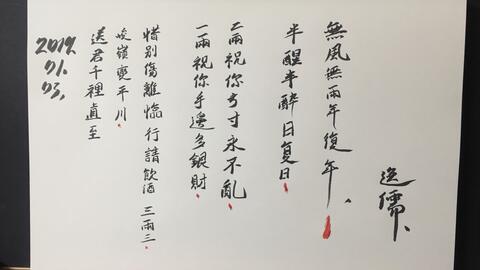 2019.
01.
03.
送君千裡直至
峻嶺變平川。
惜别傷離臨行請飲酒三兩三。
一兩祝你手邊多銀財。
二兩祝你方寸永不亂。
半醒半醉日复日。
無風無雨年復年、
逸儒、